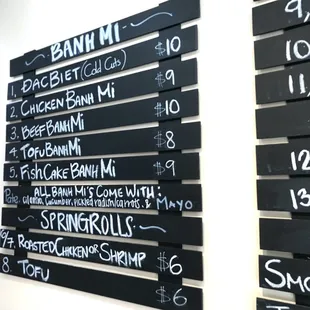 BANH MI
1. ĐACBIET (Cold Cuts) $10
2. CHICKEN BANH Mi $9
3. BEEF BANH Mi $10
4. TOFU BANH Mi $8
5. FISH CAKE BANH Mi $9
ALL BANH MI'S COME WITH:
Pate, cilantro, cucumber, pickled radish/carrots, & MAYO
SPRINGROLLS
6/7. ROASTED CHICKEN OR SHRIMP $6
8. TOFU $6
9,
10
11,
12
13
SMO